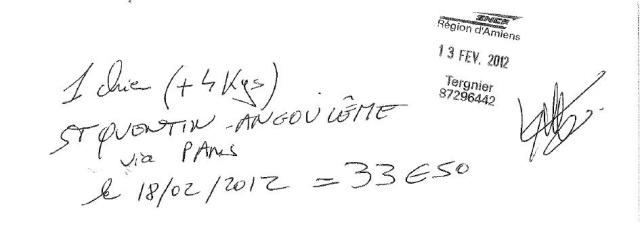 SNCF
Région d'Amiens
13 FEV. 2012
Tergnier
87296442
1 chien (+4 Kgs)
ST QUENTIN - ANGOULÊME
via PARIS
le 18/02/2012 = 33€50